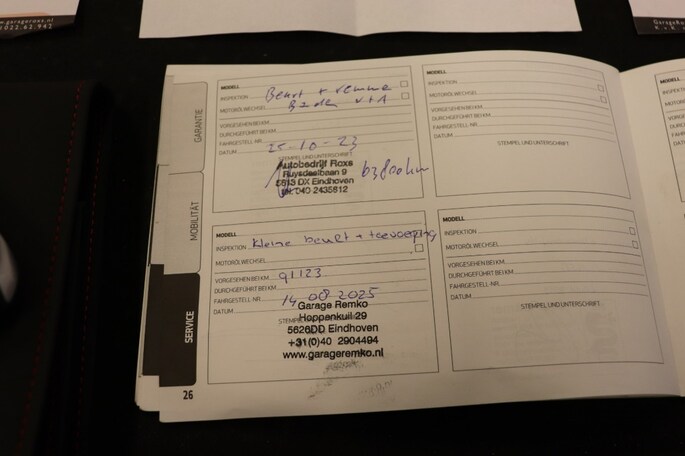 www.garageroxs.nl
GARANTIE
MOBILITÄT
SERVICE
MODELL
INSPEKTION Beurt + remmen
MOTORÖLWECHSEL Banden V+A
VORGESEHEN BEI KM
DURCHGEFÜHRT BEI KM
FAHRGESTELL NR.
DATUM 25-10-23
STEMPEL UND UNTERSCHRIFT
Autobedrijf Roxs
Ruysdaelbaan 9
5613 DX Eindhoven
040 2435612
km
MODELL
INSPEKTION
MOTORÖLWECHSEL
VORGESEHEN BEI KM
DURCHGEFÜHRT BEI KM
FAHRGESTELL NR.
DATUM
STEMPEL UND UNTERSCHRIFT
MODELL
INSPEKTION Kleine beurt +
MOTORÖLWECHSEL
VORGESEHEN BEI KM 91123
DURCHGEFÜHRT BEI KM
FAHRGESTELL NR. 14 08 2025
DATUM
Garage Remko
Hoppenkuil 29
5626DD Eindhoven
+31(0)40 2904494
www.garageremko.nl
MODELL
INSPEKTION
MOTORÖLWECHSEL
VORGESEHEN BEI KM
DURCHGEFÜHRT BEI KM
FAHRGESTELL NR.
DATUM
STEMPEL UND UNTERSCHRIFT
26